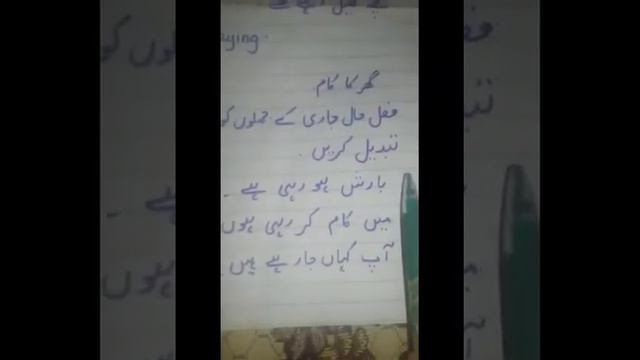 aying.
گھر کا کام
فعل حال جاری کے جملوں کو
تبدیل کریں۔
بارش ہو رہی ہے۔
میں کام کر رہی ہوں
آپ کہاں جا رہے ہیں۔